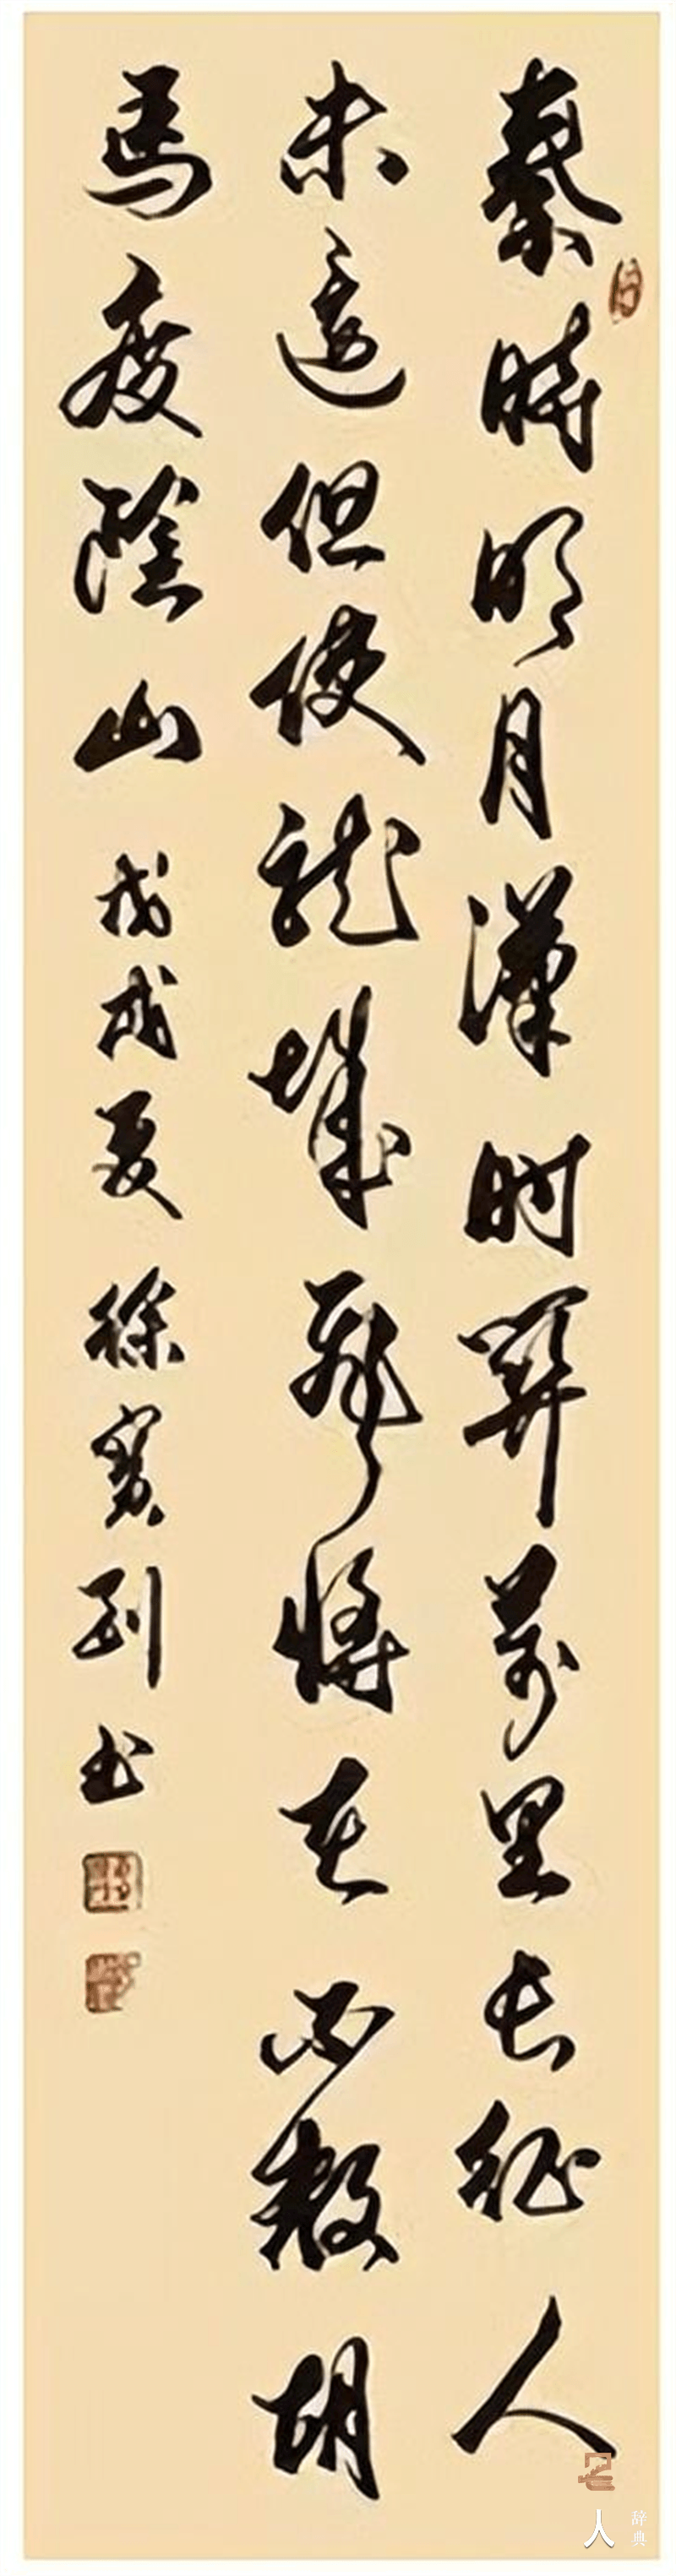 秦時明月漢时關萬里長征人
未還但使龍城飛將在不教胡
馬度陰山 戊戌夏 徐寶列书
人
辞典